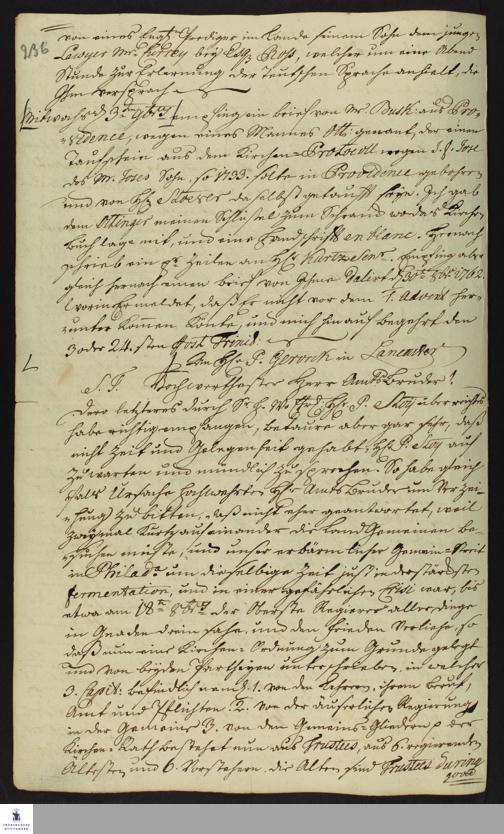 236
von eines Engl. Predigers im Lande seinem Sohn dem jungen
Lawyer Mr. Currey bey Esq. Ross, welcher um eine Abend
Stunde zur Erlernung der Teutschen Sprache anhielt, die
Ihm versprach
Mitwochs d 3t 9br. empfing ein brief von Mr. Busk: aus Pro-
vidence, wegen eines Mannes Ott: genant, der einen
Taufschein aus dem Kirchen-Protocoll wegen
des Mr. Sohn, so 1733. solte in Providence gebohren
und von H. daselbst getaufft seyn. Ich gab
dem Ottinger meinen Schlüssel zum Schrand wo das Kirchen
Buch lage mit, und eine Handschrifft en blanc. Hernach
schrieb ein pr Zeilen an H. Kurtz Senr. Empfing aber
gleich hernach einen brief von Ihme datirt d 30t 8br 1762
worin Er meldet, daß Er nicht vor dem 1. Advent her-
unter kommen könte, und mich hinauf begehrt den
3 oder 24.sten post Trinit:
An H. P. Gerock in Lancaster
S. T. Hochwerthester Herr Amts Bruder!
Dero letzteres durch H. P. überreichtes
habe richtig empfangen, betaure aber gar sehr, daß
nicht Zeit und Gelegenheit gehabt, H. P. auf
zu warten und mündlich zu sprechen. So habe gleich
fals Ursache hochwehrter H. Amts Bruder um Verzei-
hung zu bitten, daß nicht eher geantwortet, weil
zweymal kurtz auf einander die Land Gemeinen be-
suchen müste, und unser erbärmlicher Gemein-Streit
in Philada um dieselbige Zeit just in der stärcksten
fermentation, und in einer gefährlichen Crisi war, bis
etwa am 18t 8br der Oberste Regierer allerdings
in Gnaden drein sahe, und den Frieden verliehe, so
daß nun eine Kirchen-Ordnung zum Grunde gelegt
und von beyden Partheyen unterschrieben, in welcher
3. Capit: befindlich neml. 1. von den Lehrern, ihrem beruf,
Amt und Pflichten. 2. von der äuserlichen Regierung
in der Gemeine 3. von den Gemeins-Gliedern p der
Kirchen-Rath bestehet nun aus Trustees, aus 6. regierenden
Ältesten und 6. Vorstehern. die Alten sind Trustees during
good
FRANCKESCHE STIFTUNGEN